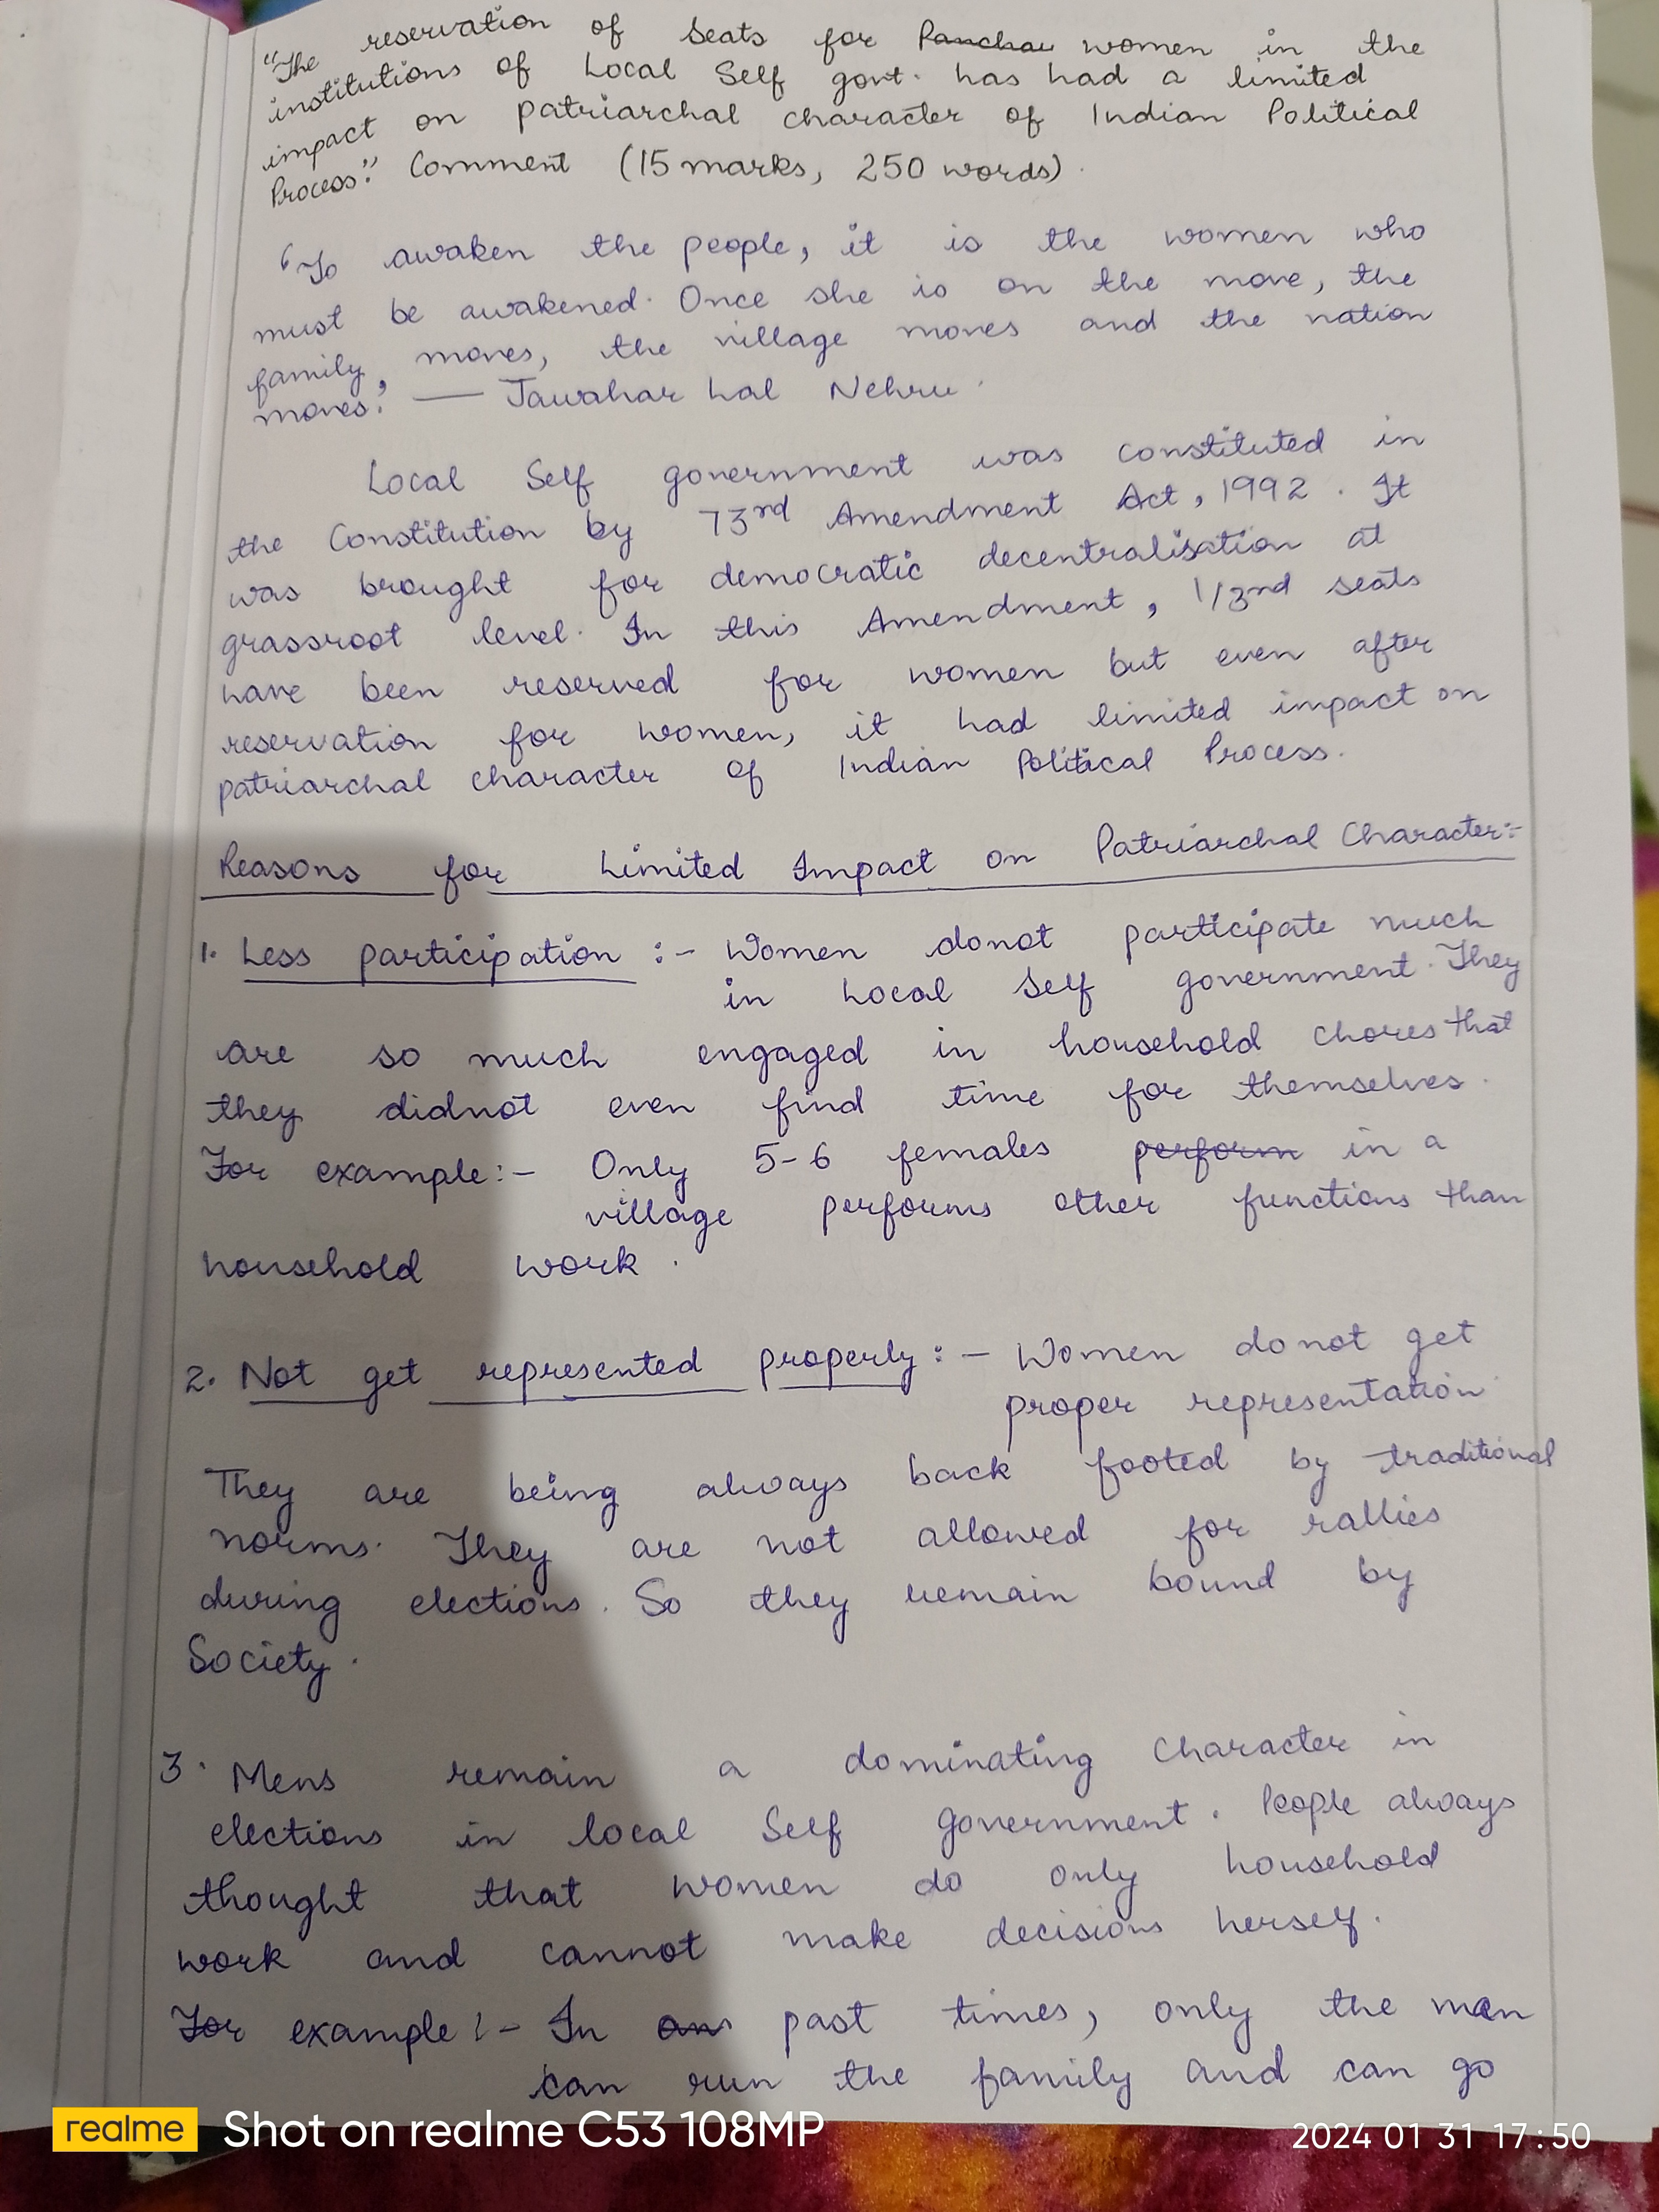 "The reservation of seats for Panchau women in the
institutions of Local Self govt. has had a limited
impact on patriarchal character of Indian Political
Process." Comment (15 marks, 250 words).
"To awaken the people, it is the women who
must be awakened. Once she is on the move, the
family, moves, the village moves and the nation
moves." — Jawahar Lal Nehru.
Local Self government was constituted in
the Constitution by 73rd Amendment Act, 1992. It
was brought for democratic decentralisation at
grassroot level. In this Amendment, 1/3nd seats
have been reserved for women but even after
reservation for women, it had limited impact on
patriarchal character of Indian Political Process.
Reasons for Limited Impact on Patriarchal Character:-
1. Less participation :- Women donot participate much
in Local Self government. They
are so much engaged in household chores that
they didnot even find time for themselves.
For example:- Only 5-6 females perform in a
village performs other functions than
household work.
2. Not get represented properly:- Women do not get
proper representation
They are being always back footed by traditional
norms. They are not allowed for rallies
during elections. So they remain bound by
Society.
3. Mens remain a dominating character in
elections in local Self government. People always
thought that women do only household
work and cannot make decisions herself.
For example:- In an past times, only the man
can run the family and can go
realme Shot on realme C53 108MP
2024 01 31 17:50